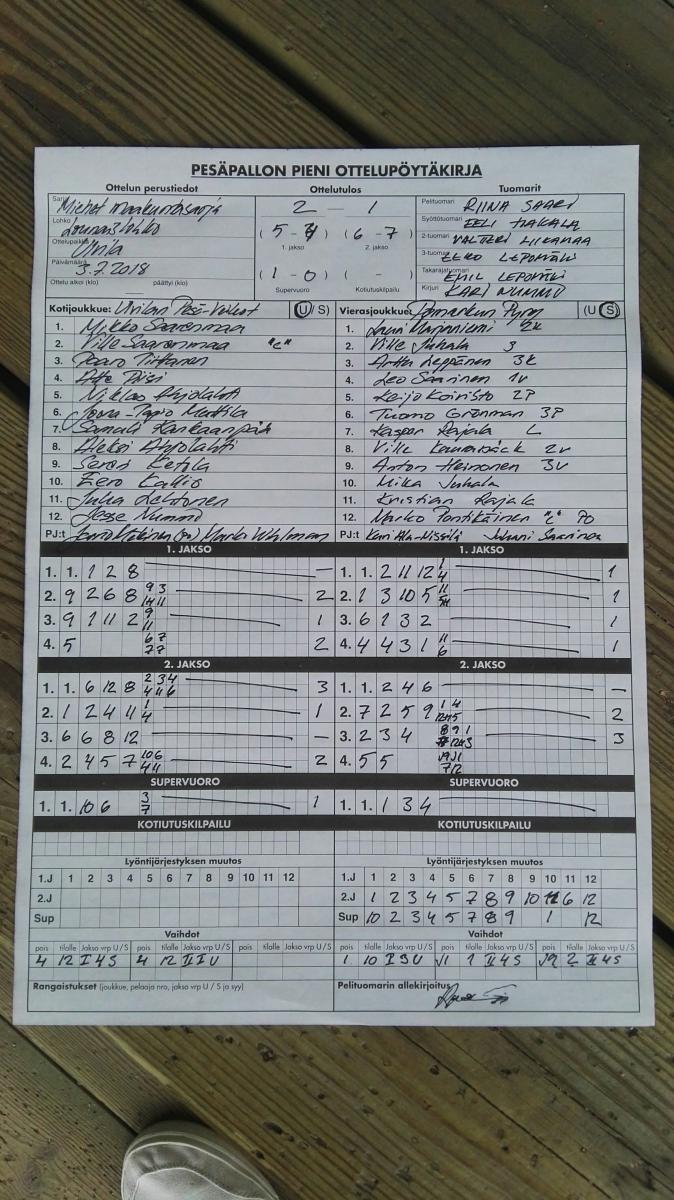 PESÄPALLON PIENI OTTELUPÖYTÄKIRJA
Ottelun perustiedot Ottelutulos Tuomarit
Sarja Miehet maakuntasarja
Lohko Lounaislohko
Ottelupaikka Ulvila
Päivämäärä 3.7.2018
Ottelu alkoi (klo) päättyi (klo)
2 — 1
( 5 - ) ( 6 - 7 )
1. jakso 2. jakso
( 1 - 0 ) ( - )
Supervuoro Kotiutuskilpailu
Pelituomari RIINA SAARI
Syöttötuomari EELI HAKALA
2-tuomari VALTTERI LIIKAMAA
3-tuomari EERO
Takarajatuomari EMIL
Kirjuri KARI NUMMI
Kotijoukkue: Ulvilan Pesä-Veikot (U/S)
1. Mikko Saarenmaa
2. Ville Saarenmaa "C"
3. Paavo
4. Atte
5. Niklas Ahjolahti
6. Joona-Tapio Mattila
7. Samuli Kankaanpää
8. Aleksi Ahjolahti
9. Ketola
10. Eero Kallio
11. Juha Lehtonen
12. Jesse Nummi
PJ:t
Vierasjoukkue: Pomarkun Pyry (U/S)
1. Lauri Marjaniemi 2k
2. Ville Juhala 3
3. Arttu Leppänen 3k
4. Leo Saarinen 1v
5. Keijo Koivisto 2P
6. Tuomo Grönman 3P
7. Kasper Rajala L
8. Ville 2v
9. Anton Heinonen 3v
10. Mika Juhala
11. Kristian Rajala
12. Marko Pontikäinen "C" PO
PJ:t Juhani Saarinen
1. JAKSO
1. 1. 1 2 8 —
2. 9 2 6 8 2
3. 9 1 11 2 9 11 1
4. 5 6 7 7 7 2
1. JAKSO
1. 1. 2 11 12 1 4 1
2. 1 3 10 5 1
3. 6 1 3 2 1
4. 4 4 3 1 11 6
2. JAKSO
1. 1. 6 12 8 2 3 4 4 4 6 3
2. 1 2 4 11 1 4 1
3. 6 6 8 12 —
4. 2 4 5 7 10 6 4 11 2
2. JAKSO
1. 1. 2 4 6 —
2. 7 2 5 9 2
3. 2 3 4 8 9 1 3
4. 5 5
SUPERVUORO
1. 1. 10 6 3 7 1
SUPERVUORO
1. 1. 1 3 4
KOTIUTUSKILPAILU
KOTIUTUSKILPAILU
Lyöntijärjestyksen muutos
1.J 1 2 3 4 5 6 7 8 9 10 11 12
2.J
Sup
Lyöntijärjestyksen muutos
1.J 1 2 3 4 5 6 7 8 9 10 11 12
2.J 1 2 3 4 5 7 8 9 10 11 6 12
Sup 10 2 3 4 5 7 8 9 1 12
Vaihdot
pois tilalle Jakso vrp U / S pois tilalle Jakso vrp U / S pois tilalle Jakso vrp U / S
4 12 I 4 S 4 12 II 1 U
Vaihdot
pois tilalle Jakso vrp U / S pois tilalle Jakso vrp U / S pois tilalle Jakso vrp U / S
1 10 I 3 U 1 II 4 S 2 II 4 S
Rangaistukset (joukkue, pelaaja nro, jakso vrp U / S ja syy)
Pelituomarin allekirjoitus